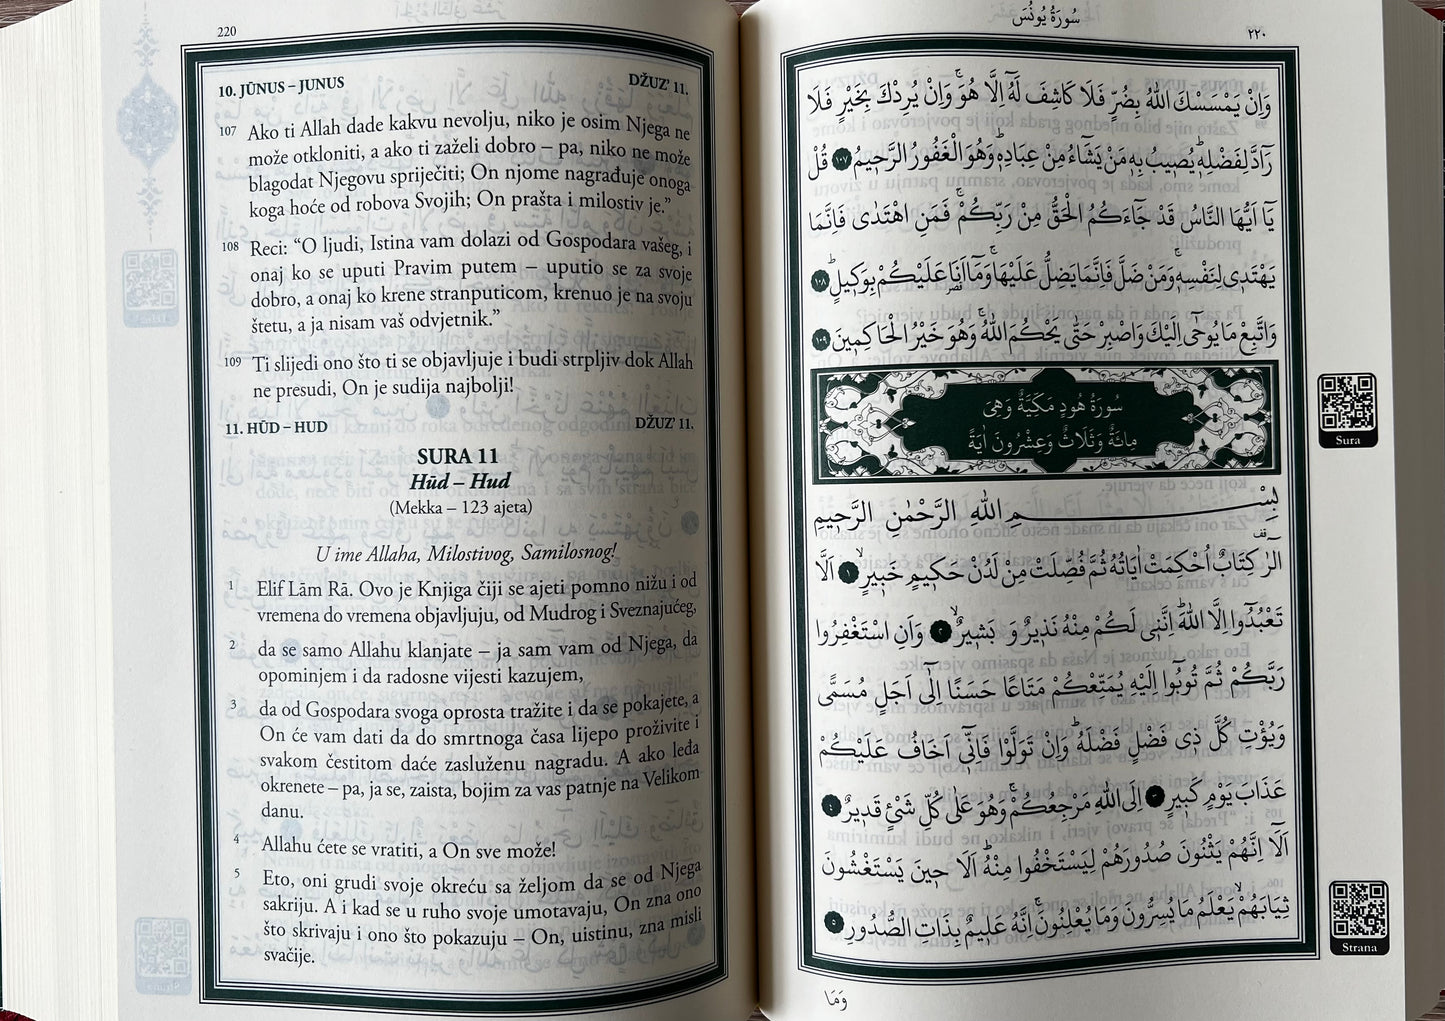 220
10. JŪNUS – JUNUS DŽUZ’ 11.
107 Ako ti Allah dade kakvu nevolju, niko je osim Njega ne
može otkloniti, a ako ti zaželi dobro – pa, niko ne može
blagodat Njegovu spriječiti; On njome nagrađuje onoga
koga hoće od robova Svojih; On prašta i milostiv je.”
108 Reci: “O ljudi, Istina vam dolazi od Gospodara vašeg, i
onaj ko se uputi Pravim putem – uputio se za svoje
dobro, a onaj ko krene stranputicom, krenuo je na svoju
štetu, a ja nisam vaš odvjetnik.”
109 Ti slijedi ono što ti se objavljuje i budi strpljiv dok Allah
ne presudi, On je sudija najbolji!
11. HŪD – HUD DŽUZ’ 11.
SURA 11
Hūd – Hud
(Mekka – 123 ajeta)
U ime Allaha, Milostivog, Samilosnog!
1 Elif Lām Rā. Ovo je Knjiga čiji se ajeti pomno nižu i od
vremena do vremena objavljuju, od Mudrog i Sveznajućeg,
2 da se samo Allahu klanjate – ja sam vam od Njega, da
opominjem i da radosne vijesti kazujem,
3 da od Gospodara svoga oprosta tražite i da se pokajete, a
On će vam dati da do smrtnoga časa lijepo proživite i
svakom čestitom daće zasluženu nagradu. A ako leđa
okrenete – pa, ja se, zaista, bojim za vas patnje na Velikom
danu.
4 Allahu ćete se vratiti, a On sve može!
5 Eto, oni grudi svoje okreću sa željom da se od Njega
sakriju. A i kad se u ruho svoje umotavaju, On zna ono
što skrivaju i ono što pokazuju – On, uistinu, zna misli
svačije.
سُورَةُ يُونُسَ ٢٢٠
وَاِنْ يَمْسَسْكَ اللّٰهُ بِضُرٍّ فَلَا كَاشِفَ لَهُٓ اِلَّا هُوَۚ وَاِنْ يُرِدْكَ بِخَيْرٍ فَلَا
رَٓادَّ لِفَضْلِهٖۜ يُصٖيبُ بِهٖ مَنْ يَشَٓاءُ مِنْ عِبَادِهٖۜ وَهُوَ الْغَفُورُ الرَّحٖيمُ ١٠٧ قُلْ
يَٓا اَيُّهَا النَّاسُ قَدْ جَٓاءَكُمُ الْحَقُّ مِنْ رَبِّكُمْۚ فَمَنِ اهْتَدٰى فَاِنَّمَا
يَهْتَدٖى لِنَفْسِهٖۚ وَمَنْ ضَلَّ فَاِنَّمَا يَضِلُّ عَلَيْهَاۚ وَمَٓا اَنَا۬ عَلَيْكُمْ بِوَكٖيلٍۜ ١٠٨
وَاتَّبِعْ مَا يُوحٰٓى اِلَيْكَ وَاصْبِرْ حَتّٰى يَحْكُمَ اللّٰهُۚ وَهُوَ خَيْرُ الْحَاكِمٖينَ ١٠٩
سُورَةُ هُودٍ مَكِّيَّةٌ وَهِىَ
مِائَةٌ وَثَلَاثٌ وَعِشْرُونَ اٰيَةً
بِسْمِ اللّٰهِ الرَّحْمٰنِ الرَّحٖيمِ
الٓرٰ كِتَابٌ اُحْكِمَتْ اٰيَاتُهُ ثُمَّ فُصِّلَتْ مِنْ لَدُنْ حَكٖيمٍ خَبٖيرٍۙ ١ اَلَّا
تَعْبُدُٓوا اِلَّا اللّٰهَۜ اِنَّنٖى لَكُمْ مِنْهُ نَذٖيرٌ وَ بَشٖيرٌۙ ٢ وَاَنِ اسْتَغْفِرُوا
رَبَّكُمْ ثُمَّ تُوبُٓوا اِلَيْهِ يُمَتِّعْكُمْ مَتَاعًا حَسَنًا اِلٰٓى اَجَلٍ مُسَمًّى
وَيُؤْتِ كُلَّ ذٖى فَضْلٍ فَضْلَهُۜ وَاِنْ تَوَلَّوْا فَاِنّٖٓى اَخَافُ عَلَيْكُمْ
عَذَابَ يَوْمٍ كَبٖيرٍ ٣ اِلَى اللّٰهِ مَرْجِعُكُمْۚ وَهُوَ عَلٰى كُلِّ شَىْءٍ قَدٖيرٌ ٤
اَلَٓا اِنَّهُمْ يَثْنُونَ صُدُورَهُمْ لِيَسْتَخْفُوا مِنْهُۜ اَلَا حٖينَ يَسْتَغْشُونَ
ثِيَابَهُمْۙ يَعْلَمُ مَا يُسِرُّونَ وَمَا يُعْلِنُونَۚ اِنَّهُ عَلٖيمٌ بِذَاتِ الصُّدُورِ ٥
وَمَا
Sura
Strana